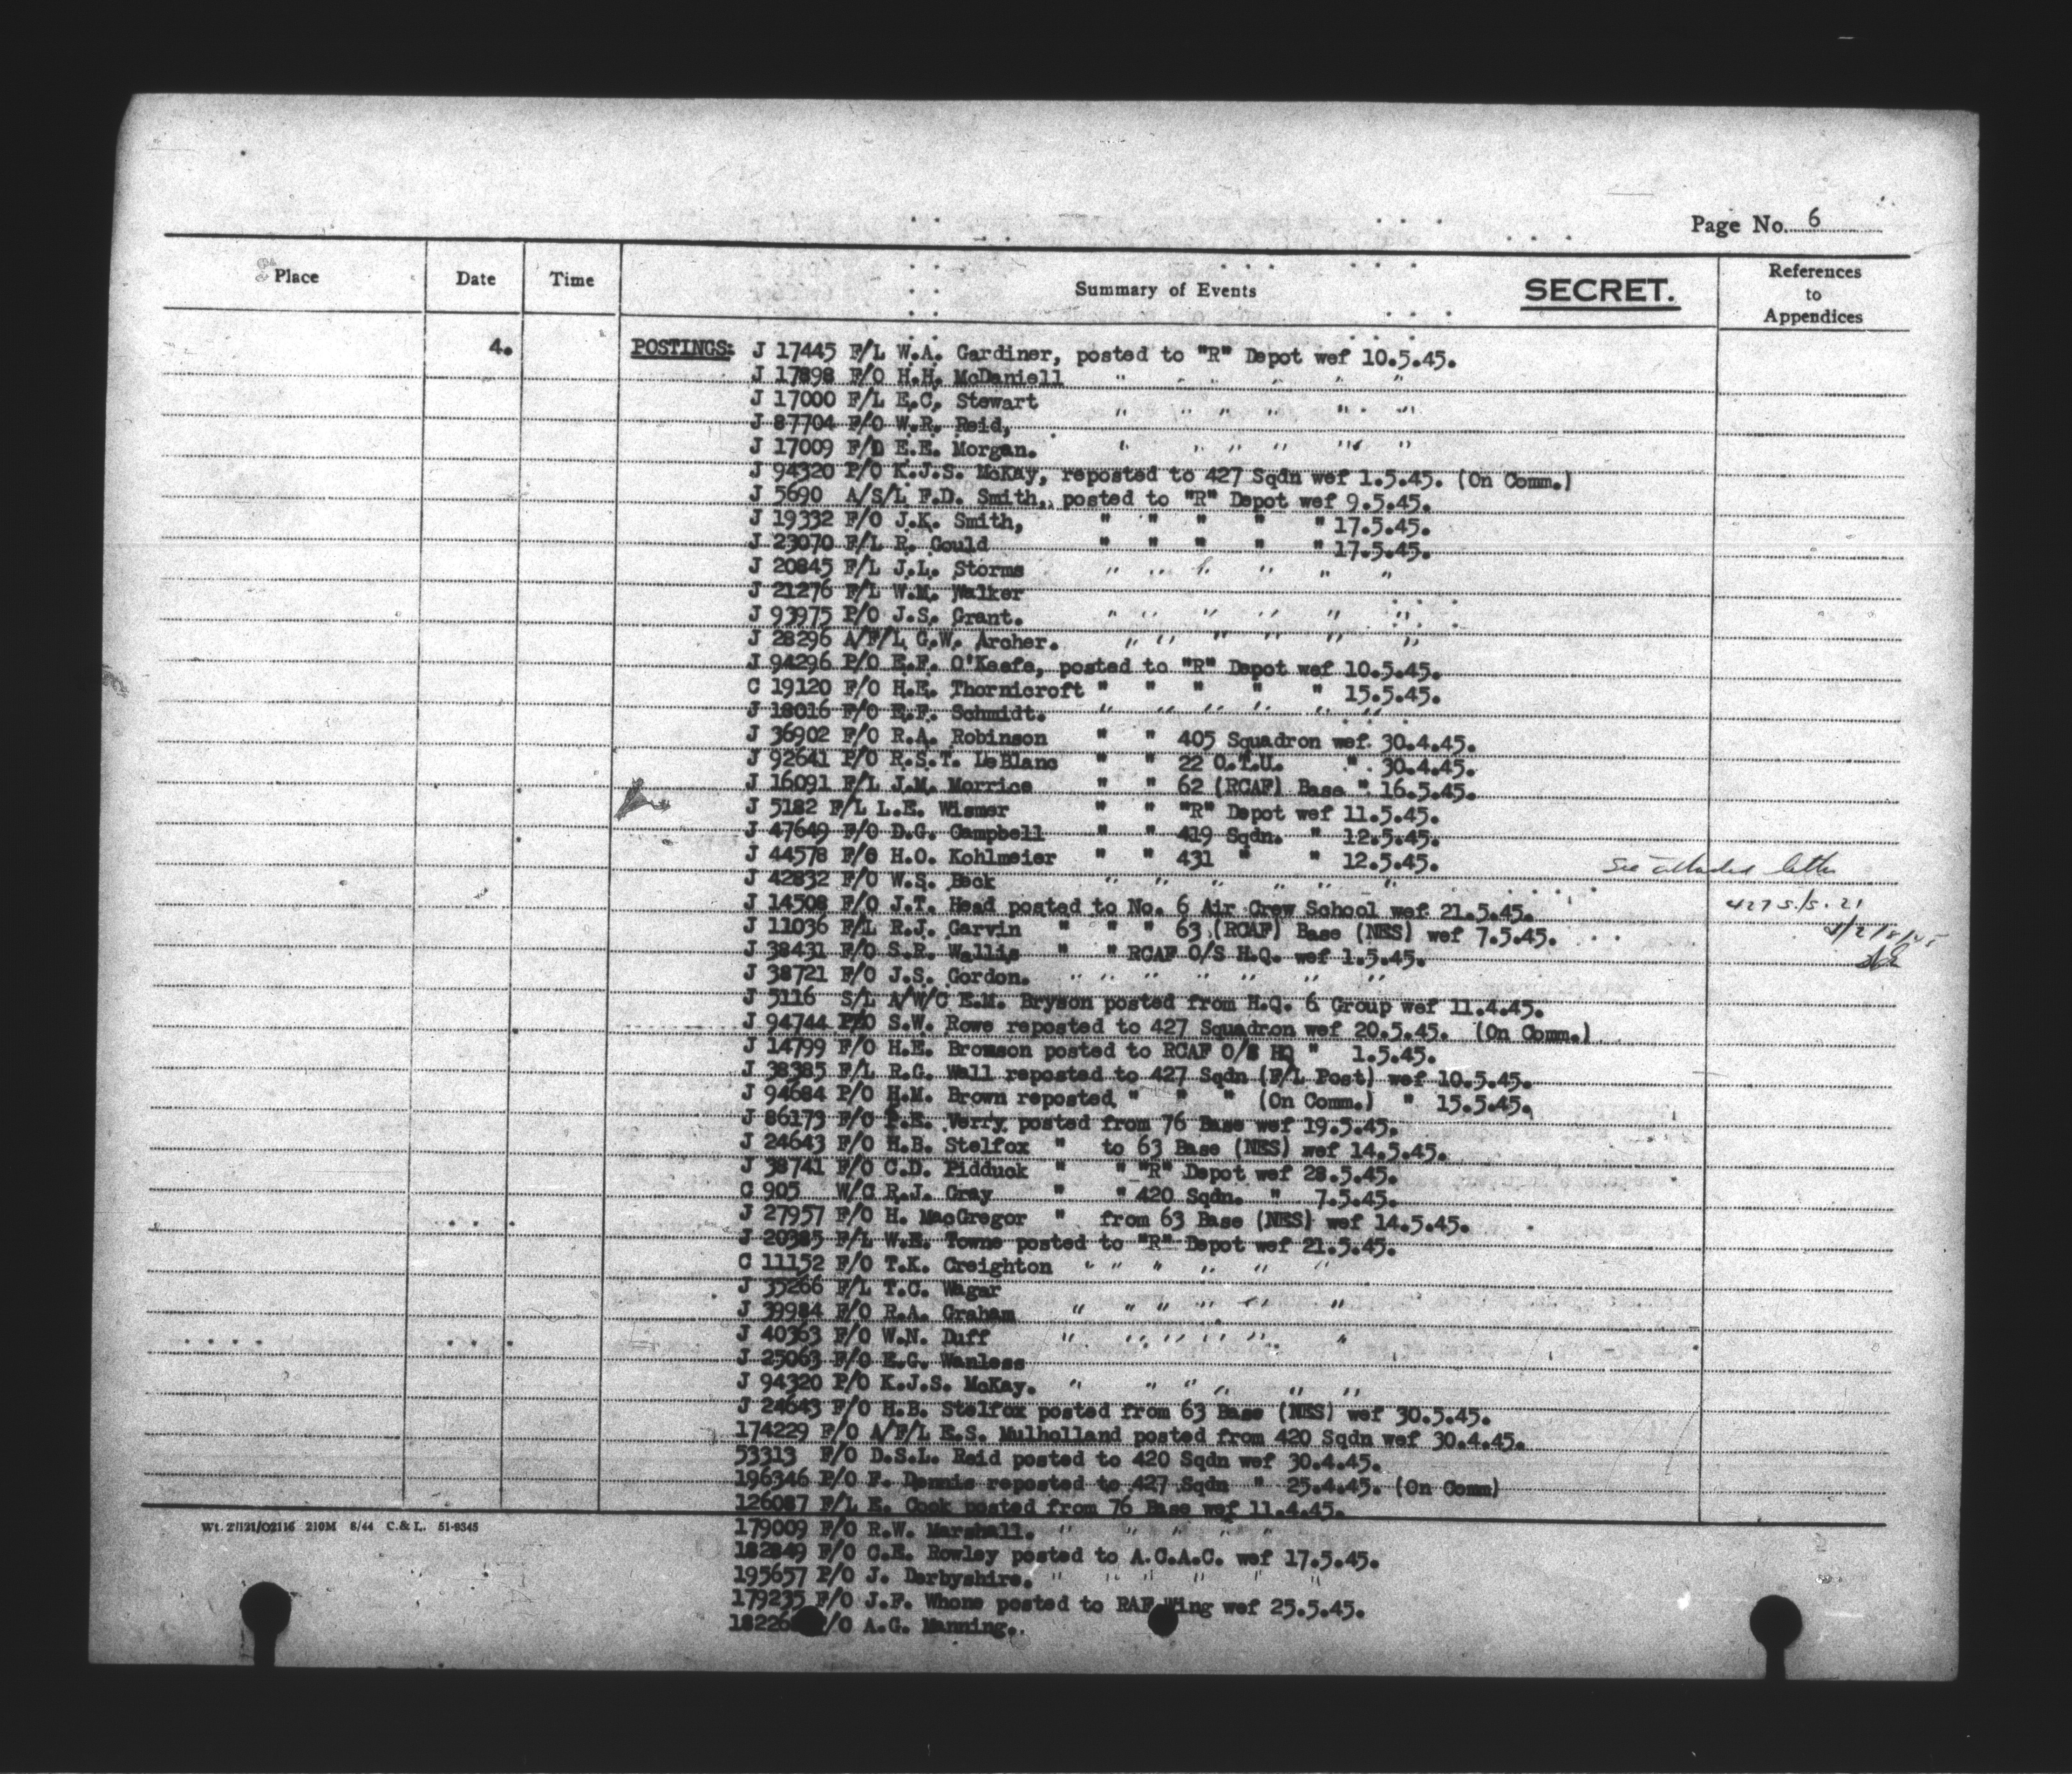 Page No. 6
Place
Date
Time
Summary of Events
SECRET.
References
to
Appendices
4.
POSTINGS: J 17445 F/L W.A. Gardiner, posted to "R" Depot wef 10.5.45.
J 17898 F/O H.H. McDaniell " " " " " "
J 17000 F/L E.C. Stewart " " " " " "
J 87704 F/O W.R. Reid,
J 17009 E.E. Morgan. " " " " " "
J 94320 P/O K.J.S. McKay, reposted to 427 Sqdn wef 1.5.45. (On Comm.)
J 5690 A/S/L F.D. Smith, posted to "R" Depot wef 9.5.45.
J 19332 F/O J.K. Smith, " " " " " 17.5.45.
J 23070 F/L R. Gould " " " " " 17.5.45.
J 20845 F/L J.L. Storms " " " " " "
J 21276 F/L W.M. Walker
J 93975 P/O J.S. Grant. " " " " " "
J 28296 A/F/L G.W. Archer. " " " " " "
J 94296 P/O E.F. O'Keefe, posted to "R" Depot wef 10.5.45.
C 19120 F/O H.E. Thornicroft " " " " " 15.5.45.
J 18016 F/O E.F. Schmidt. " " " " " "
J 36902 F/O R.A. Robinson " " 405 Squadron wef. 30.4.45.
J 92641 P/O R.S.T. LeBlanc " " 22 O.T.U. " 30.4.45.
J 16091 F/L J.M. Morrice " " 62 (RCAF) Base " 16.5.45.
J 5182 F/L L.E. Wismer " " "R" Depot wef 11.5.45.
J 47649 F/O D.G. Campbell " " 419 Sqdn. " 12.5.45.
J 44578 F/O H.O. Kohlmeier " " 431 " " 12.5.45.
See attached letter
J 42832 F/O W.S. Beck " " " " " "
J 14508 F/O J.T. Head posted to No. 6 Air Crew School wef 21.5.45.
427 S/S. 21
J 11036 F/L R.J. Garvin " " " 63 (RCAF) Base (NES) wef 7.5.45.
J 38431 F/O S.R. Wallis " " RCAF O/S H.Q. wef 1.5.45.
J 38721 F/O J.S. Gordon. " " " " " " "
J 5116 S/L A/W/C E.M. Bryson posted from H.Q. 6 Group wef 11.4.45.
J 94744 P/O S.W. Rowe reposted to 427 Squadron wef 20.5.45. (On Comm.)
J 14799 F/O H.E. Bromson posted to RCAF O/S HQ " 1.5.45.
J 38385 F/L R.G. Wall reposted to 427 Sqdn (F/L Post) wef 10.5.45.
J 94684 P/O H.M. Brown reposted " " " (On Comm.) " 15.5.45.
J 86173 F/O P.E. Verry posted from 76 Base wef 19.5.45.
J 24643 F/O H.B. Stelfox " to 63 Base (NES) wef 14.5.45.
J 38741 F/O C.D. Pidduck " " "R" Depot wef 28.5.45.
C 905 W/C R.J. Gray " " 420 Sqdn. " 7.5.45.
J 27957 F/O H. MacGregor " from 63 Base (NES) wef 14.5.45.
J 20385 F/L W.E. Towne posted to "R" Depot wef 21.5.45.
C 11152 F/O T.K. Creighton " " " " " "
J 35266 F/L T.C. Wagar
J 39984 F/O R.A. Graham " " " " " " "
J 40363 F/O W.N. Duff " " " " " " "
J 25063 F/O E.G. Wanless
J 94320 P/O K.J.S. McKay. " " " " " "
J 24643 F/O H.B. Stelfox posted from 63 Base (NES) wef 30.5.45.
174229 F/O A/F/L E.S. Mulholland posted from 420 Sqdn wef 30.4.45.
53313 F/O D.S.L. Reid posted to 420 Sqdn wef 30.4.45.
196346 P/O F. Dennis reposted to 427 Sqdn " 25.4.45. (On Comm)
126087 F/L E. Cook posted from 76 Base wef 11.4.45.
179009 F/O R.W. Marshall. " " " " "
182849 F/O C.E. Rowley posted to A.C.A.C. wef 17.5.45.
195657 P/O J. Derbyshire. " " " " " "
179235 F/O J.F. Whone posted to RAF Wing wef 25.5.45.
A.G. Manning.
Wt. 27121/O2116 210M 8/44 C.& L. 51-9345